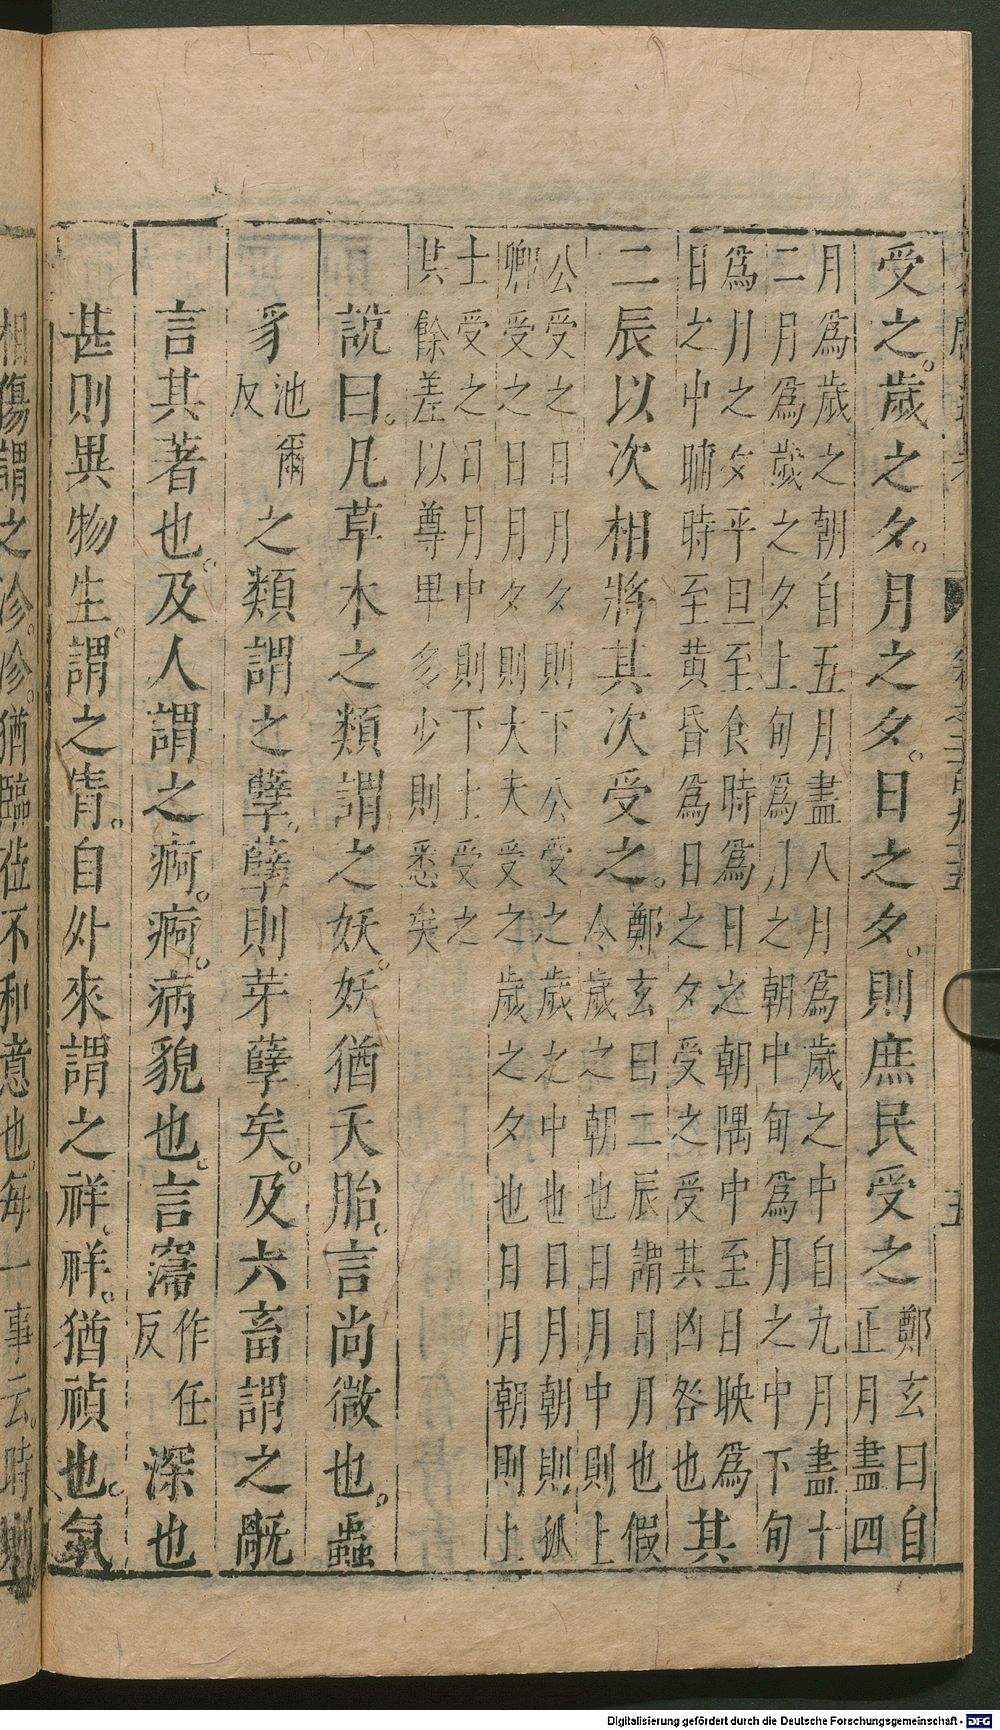 受之。歲之夕。月之夕。日之夕。則庶民受之鄭玄曰自
正月盡四
月爲歲之朝自五月盡八月爲歲之中自九月盡十
二月爲歲之夕上旬爲月之朝中旬爲月之中下旬
爲月之夕平旦至食時爲日之朝隅中至日昳爲
日之中晡時至黃昏爲日之夕受之受其凶咎也其
二辰以次相將其次受之。鄭玄曰二辰謂日月也假
令歲之朝也日月中則上
公受之日月夕則下公受之歲之中也日月朝則孤
卿受之日月夕則大夫受之歲之夕也日月朝則上
士受之日月中則下上受之
其餘差以尊卑多少則悉矣
說曰。凡草木之類謂之妖。妖猶夭胎。言尚微也。蟲
豸池爾反之類謂之孽。孽則芽孽矣。及六畜謂之旤
言其著也。及人謂之痾。痾。病貌也。言寖作任反深也
甚則異物生。謂之眚。自外來謂之祥。祥。猶禎也。氣
相傷謂之沴。沴。猶臨蒞不和意也。每一事云。時則
Digitalisierung gefördert durch die Deutsche Forschungsgemeinschaft - DFG